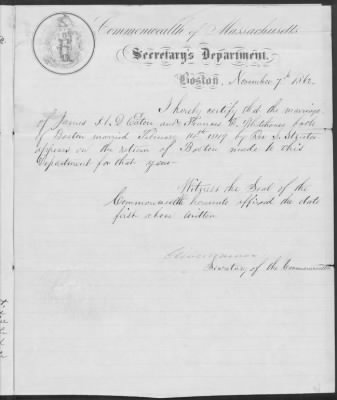 Commonwealth of Massachusetts
Secretary's Department.
Boston, November 7th 1862
I hereby certify that the marriage
of James S. D. Eaton and Frances W. Whitehouse both
of Boston married February 14th by Rev S. Streeter
appears on the return of Boston made to this
Department for that year
Witness the Seal of the
Commonwealth hereunto affixed the date
first above written
Oliver Warner
Secretary of the Commonwealth